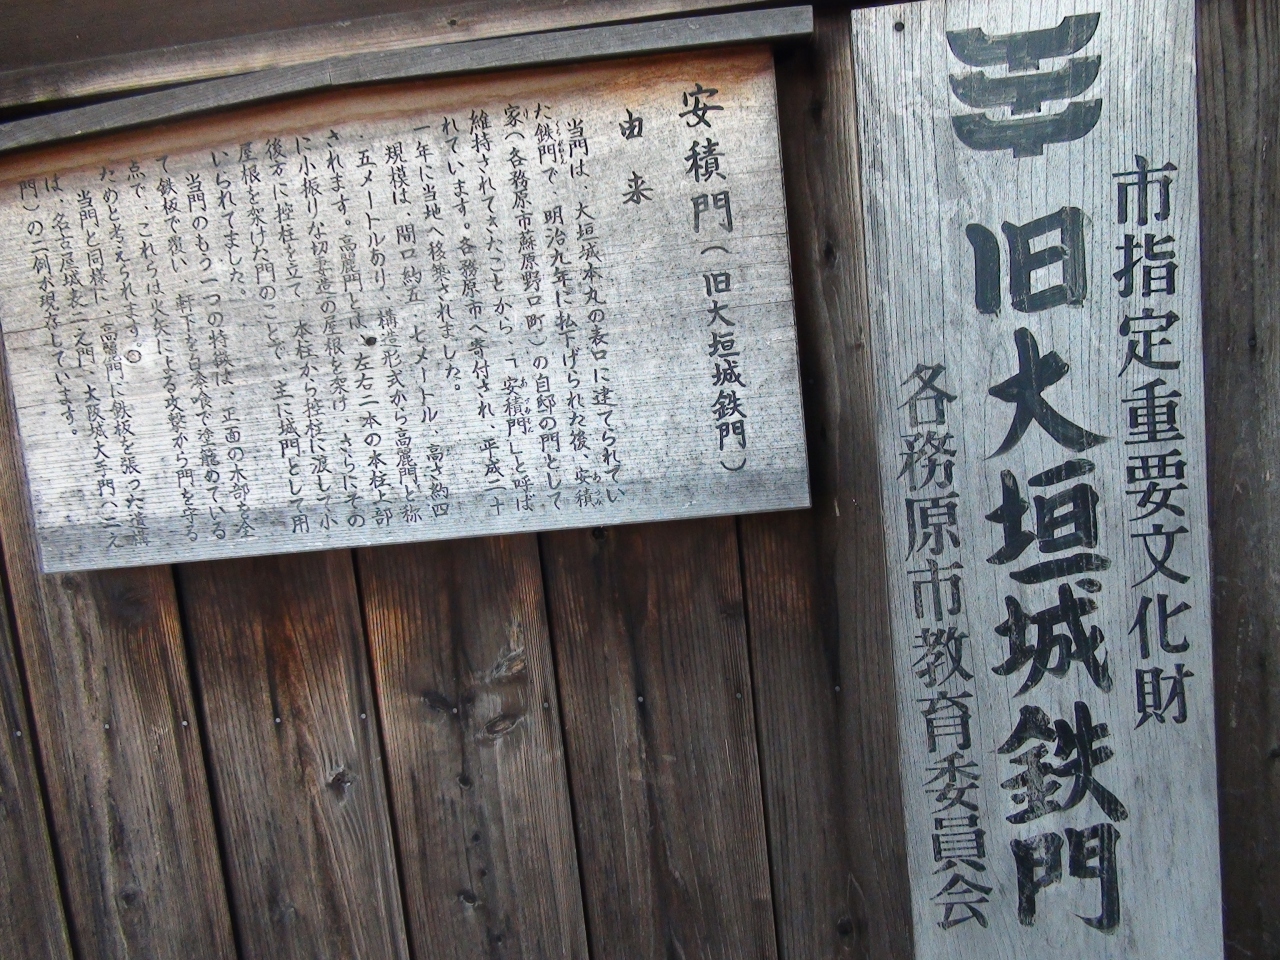 市指定重要文化財
旧大垣城鉄門
各務原市教育委員会
安積門(旧大垣城鉄門)
由来
当門は、大垣城本丸の表口に建てられてい
た鉄門で、明治九年に払下げられた後、安積
家(各務原市蘇原野口町)の自邸の門として
維持されてきたことから、「安積門」と呼ば
れています。各務原市へ寄付され、平成二十
一年に当地へ移築されました。
規模は、間口約五・七メートル、高さ約四
・五メートルあり、構造形式から高麗門と称
されます。高麗門とは、左右二本の本柱上部
に小振りな切妻造の屋根を架け、さらにその
後方に控柱を立て、本柱から控柱に渡して小
屋根を架けた門のことで、主に城門として用
いられてました。
当門のもう一つの特徴は、正面の木部を全
て鉄板で覆い、軒下を白漆喰で塗籠めている
点で、これらは火矢による攻撃から門を守る
ためと考えられます。
当門と同様に、高麗門に鉄板を張った遺構
は、名古屋城表二之門、大阪城大手門(二之
門)の二例が現存しています。